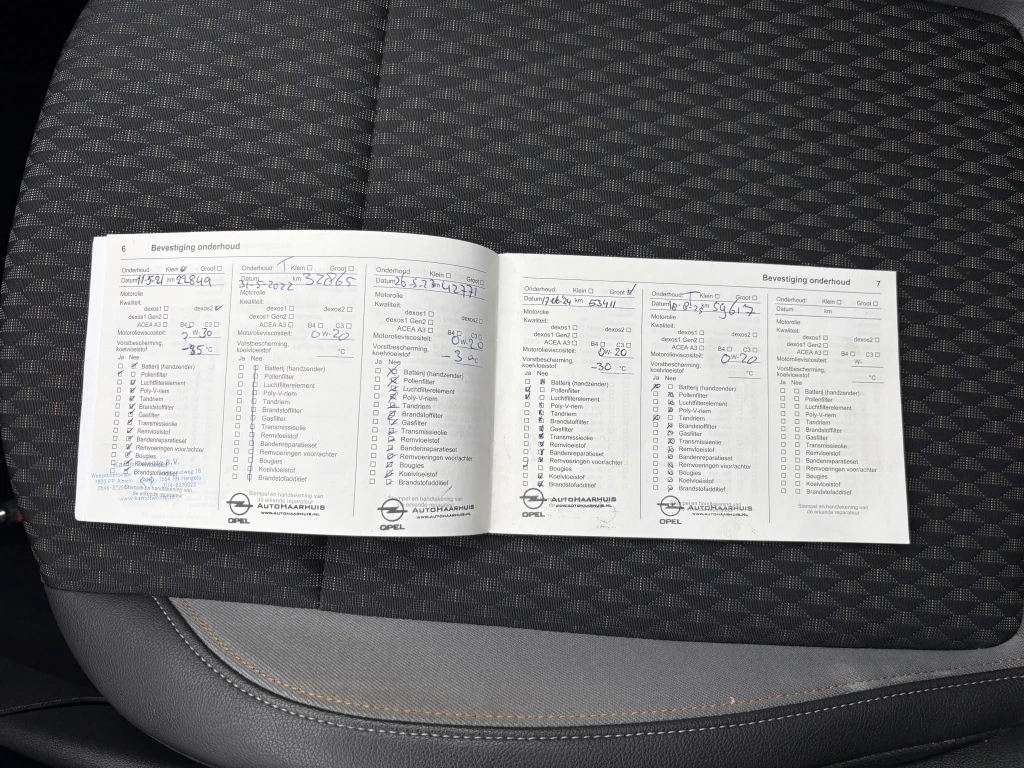 6 Bevestiging onderhoud
Onderhoud: Klein Groot
Datum 11-5-21 km 22849
Motorolie
Kwaliteit:
dexos1 dexos2
dexos1 Gen2
ACEA A3 B4 C3
Motorolieviscositeit: W-30
Vorstbescherming, koelvloeistof -35 °C
Ja Nee
Batterij (handzender)
Pollenfilter
Luchtfilterelement
Poly-V-riem
Tandriem
Brandstoffilter
Gasfilter
Transmissieolie
Remvloeistof
Bandenreparatieset
Remvoeringen voor/achter
Bougies
Koelvloeistof
Brandstofadditief
Onderhoud: T Klein Groot
Datum 31-5-2022 km 32865
Motorolie
Kwaliteit:
dexos1 dexos2
dexos1 Gen2
ACEA A3 B4 C3
Motorolieviscositeit: 0W-20
Vorstbescherming, koelvloeistof °C
Ja Nee
Batterij (handzender)
Pollenfilter
Luchtfilterelement
Poly-V-riem
Tandriem
Brandstoffilter
Gasfilter
Transmissieolie
Remvloeistof
Bandenreparatieset
Remvoeringen voor/achter
Bougies
Koelvloeistof
Brandstofadditief
Stempel en handtekening van
de erkende reparateur
OPEL AUTOHAARHUIS
WWW.AUTOHAARHUIS.NL
Onderhoud: Klein Groot
Datum 26-5-23 km 42771
Motorolie
Kwaliteit:
dexos1 dexos2
dexos1 Gen2
ACEA A3 B4 C3
Motorolieviscositeit: 0W-20
Vorstbescherming, koelvloeistof
Ja Nee
Batterij (handzender)
Pollenfilter
Luchtfilterelement
Poly-V-riem
Tandriem
Brandstoffilter
Gasfilter
Transmissieolie
Remvloeistof
Bandenreparatieset
Remvoeringen voor/achter
Bougies
Koelvloeistof
Brandstofadditief
Stempel en handtekening van
de erkende reparateur
OPEL AUTOHAARHUIS
WWW.AUTOHAARHUIS.NL
Bevestiging onderhoud 7
Onderhoud: Klein Groot
Datum 17-06-24 km 53411
Motorolie
Kwaliteit:
dexos1 dexos2
dexos1 Gen2
ACEA A3 B4 C3
Motorolieviscositeit: 0W-20
Vorstbescherming, koelvloeistof -30 °C
Ja Nee
Batterij (handzender)
Pollenfilter
Luchtfilterelement
Poly-V-riem
Tandriem
Brandstoffilter
Gasfilter
Transmissieolie
Remvloeistof
Bandenreparatieset
Remvoeringen voor/achter
Bougies
Koelvloeistof
Brandstofadditief
OPEL AUTOHAARHUIS
WWW.AUTOHAARHUIS.NL
Onderhoud: T Klein Groot
Datum 18-8-25 km 59617
Motorolie
Kwaliteit:
dexos1 dexos2
dexos1 Gen2
ACEA A3 B4 C3
Motorolieviscositeit: 0W-20
Vorstbescherming, koelvloeistof °C
Ja Nee
Batterij (handzender)
Pollenfilter
Luchtfilterelement
Poly-V-riem
Tandriem
Brandstoffilter
Gasfilter
Transmissieolie
Remvloeistof
Bandenreparatieset
Remvoeringen voor/achter
Bougies
Koelvloeistof
Brandstofadditief
OPEL AUTOHAARHUIS
WWW.AUTOHAARHUIS.NL
Onderhoud: Klein Groot
Datum km
Motorolie
Kwaliteit:
dexos1 dexos2
dexos1 Gen2
ACEA A3 B4 C3
Motorolieviscositeit: W-
Vorstbescherming, koelvloeistof °C
Ja Nee
Batterij (handzender)
Pollenfilter
Luchtfilterelement
Poly-V-riem
Tandriem
Brandstoffilter
Gasfilter
Transmissieolie
Remvloeistof
Bandenreparatieset
Remvoeringen voor/achter
Bougies
Koelvloeistof
Brandstofadditief
Stempel en handtekening van
de erkende reparateur